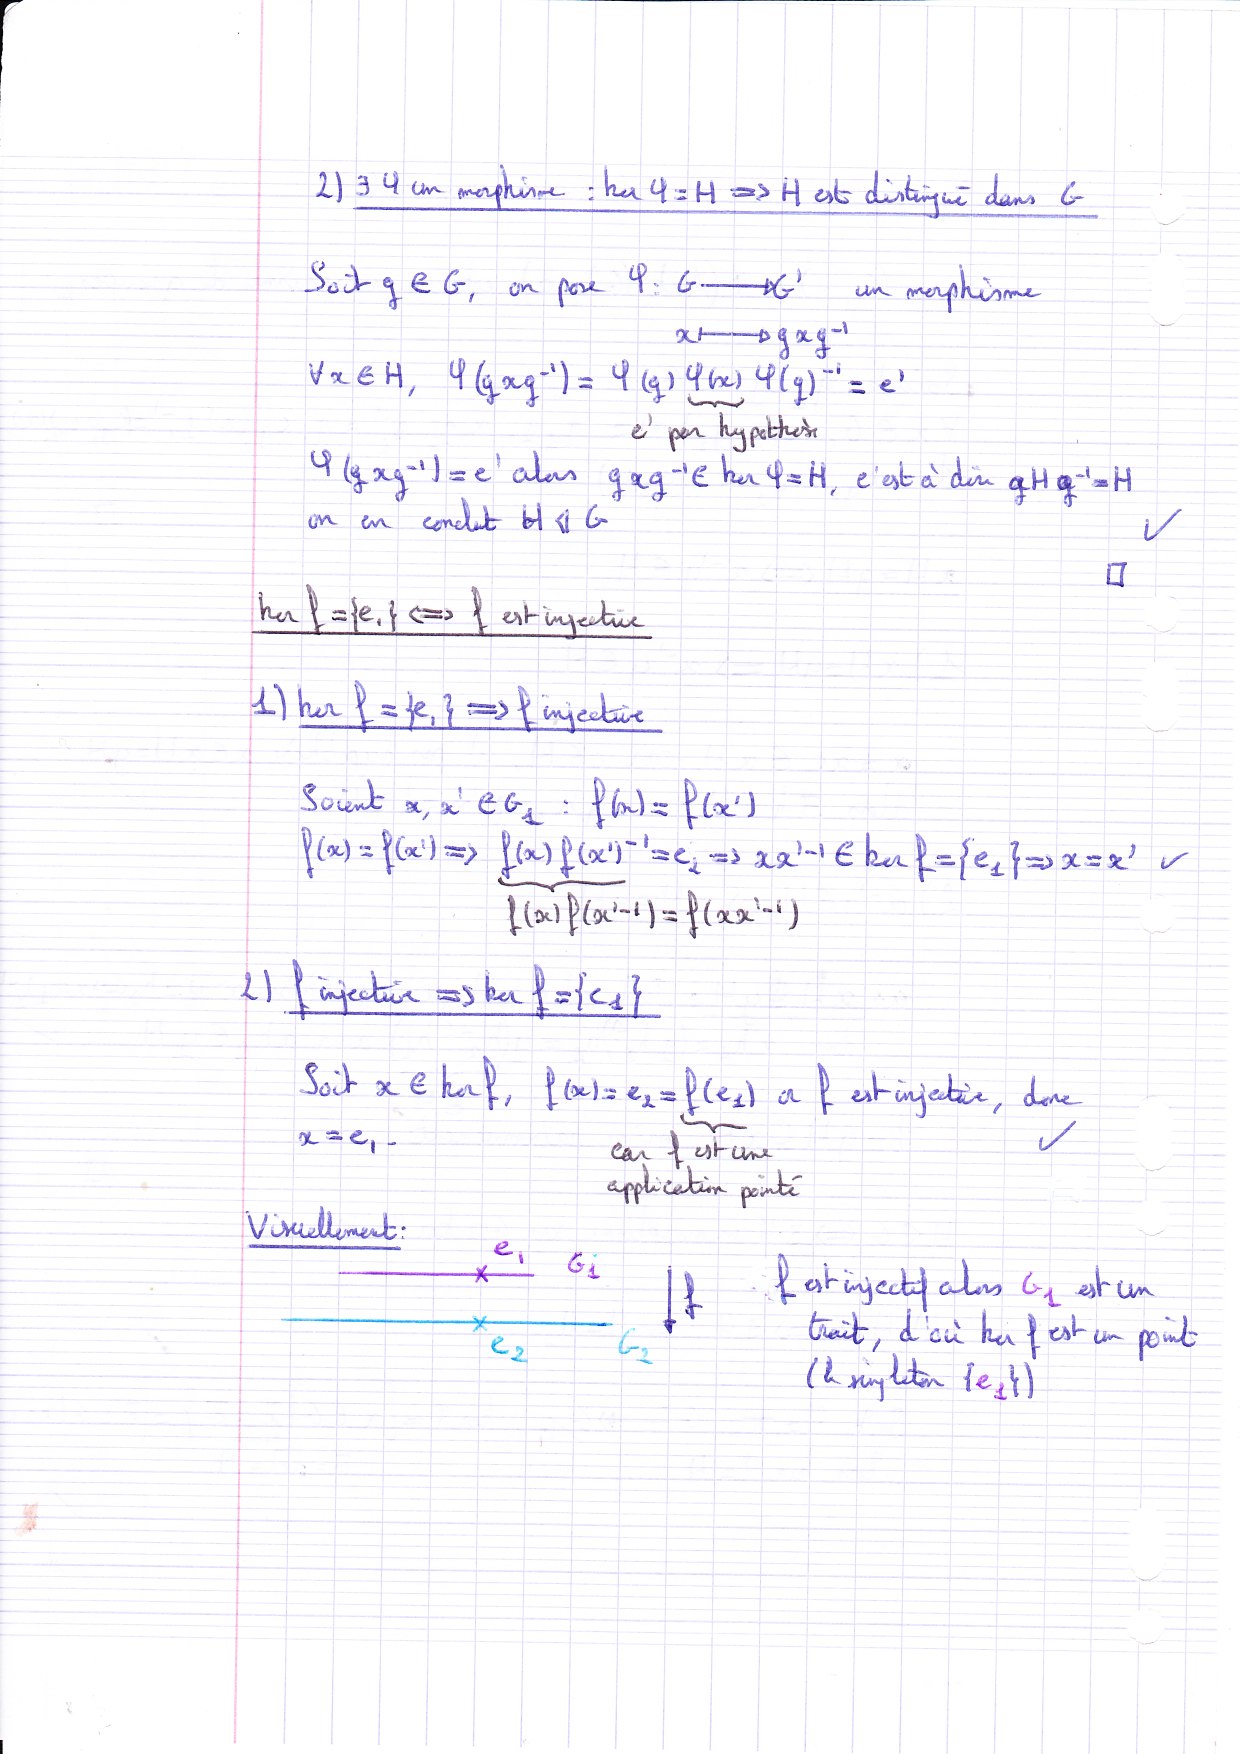 2) ∃ φ un morphisme : ker φ = H => H est distingué dans G
Soit g ∈ G, on pose φ : G ⟶ G' un morphisme
x ⟼ g x g⁻¹
∀x ∈ H, φ(g x g⁻¹) = φ(g) φ(x) φ(g)⁻¹ = e'
e' par hypothèse
φ(g x g⁻¹) = e' alors g x g⁻¹ ∈ ker φ = H, c'est à dire g H g⁻¹ = H
on en conclut H ⊲ G ✓
□
ker f = {e₁} <=> f est injective
1) ker f = {e₁} => f injective
Soient x, x' ∈ G₁ : f(x) = f(x')
f(x) = f(x') => f(x) f(x')⁻¹ = e₂ => x x'⁻¹ ∈ ker f = {e₁} => x = x' ✓
f(x) f(x'⁻¹) = f(x x'⁻¹)
2) f injective => ker f = {e₁}
Soit x ∈ ker f, f(x) = e₂ = f(e₁) or f est injective, donc
x = e₁. ✓
car f est une
application pointé
Visuellement :
e₁ G₁
e₂ G₂
f
f est injectif alors G₁ est un
trait, d'où ker f est un point
(le singleton {e₁})